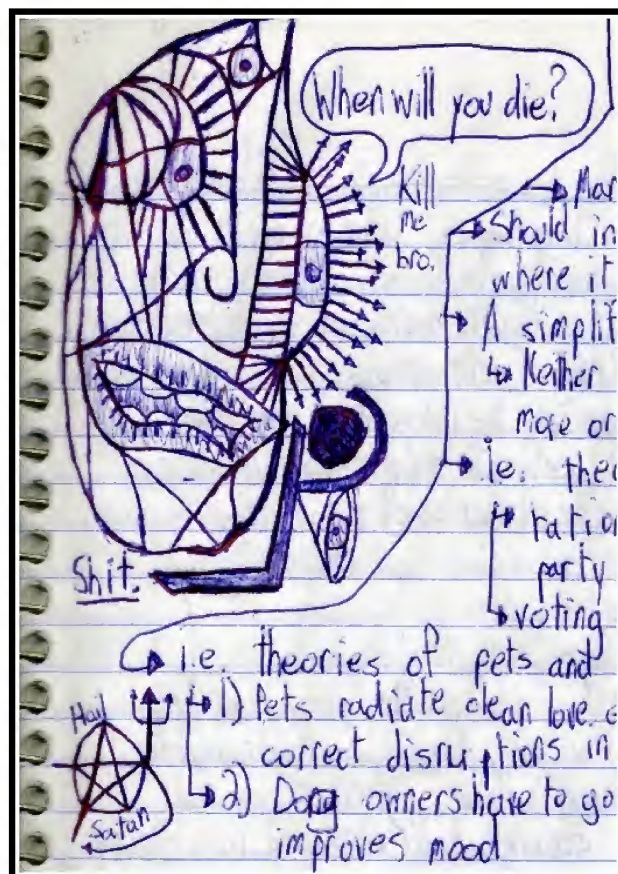 When will you die?
Kill
me
bro.
Mar
Should in
where it
A simplif
Neither
more or
ie. the
ratio
party
voting
Shit.
i.e. theories of pets and
1) Pets radiate clean love
correct disruptions in
2) Dog owners have to go
improves mood
Hail
Satan